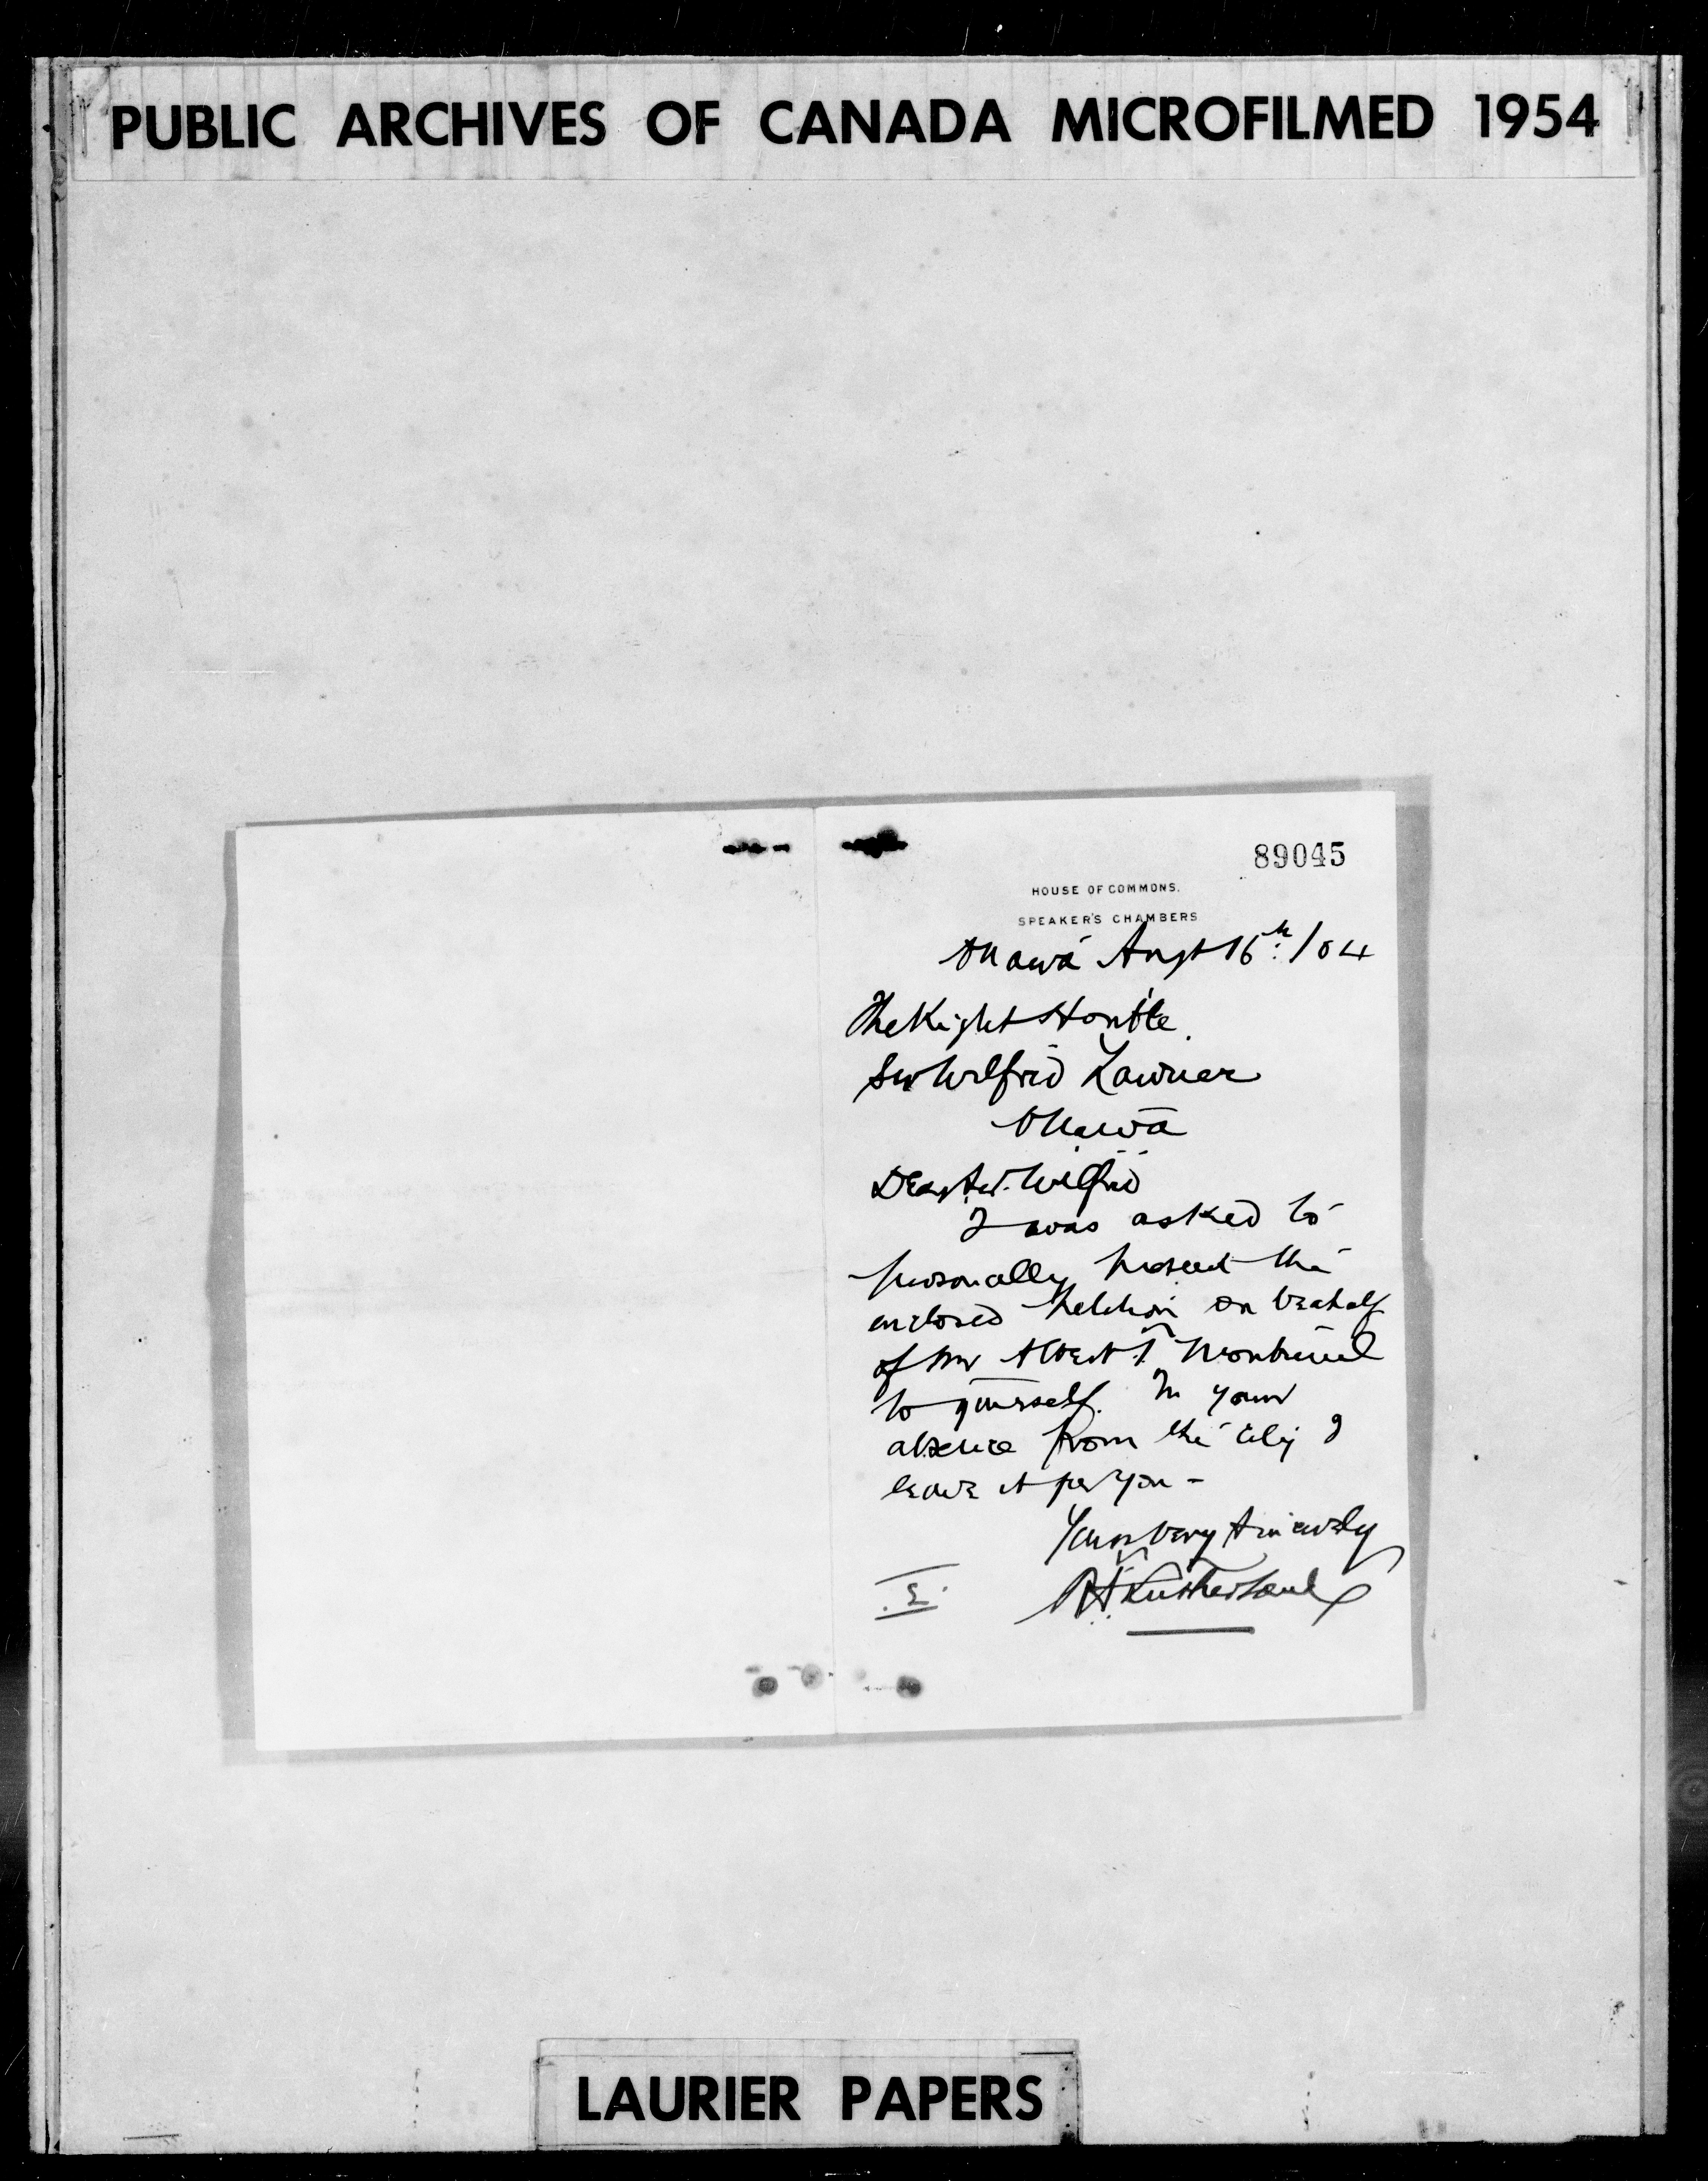 PUBLIC ARCHIVES OF CANADA MICROFILMED 1954
89045
HOUSE OF COMMONS.
SPEAKER'S CHAMBERS
Ottawa Augt 16th /04
The Right Honble
Sir Wilfrid Laurier
Ottawa
Dear Sir Wilfrid
I was asked to
personally present the
enclosed petition on beahalf
of Mr Albert J. Montreuil
to yourself. In your
absence from the city I
leave it for you -
Yours very sincerely
Sutherland
LAURIER PAPERS